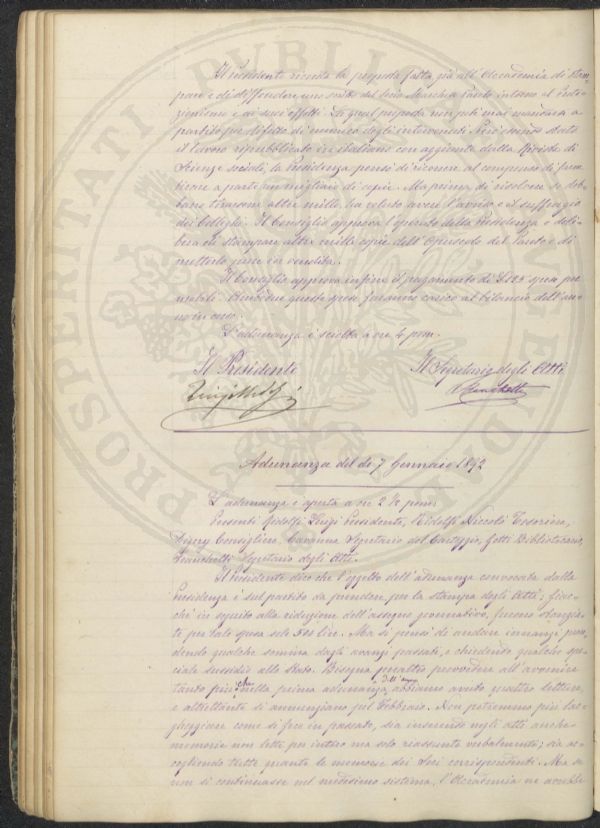 Il Presidente ricorda la proposta fatta già all'Accademia di stam-
pare e di diffondere uno scritto del socio Marchese Pareto intorno al Prote-
zionismo e ai suoi effetti. La qual proposta non poté mai mandarsi a
partito per difetto di numero degli intervenuti. Però essendo stato
il lavoro ripubblicato in italiano con aggiunte dalla Rivista di
Scienze sociali, la Presidenza pensò di ricorrere al compenso di farne
tirare a parte un migliaio di copie. Ma prima di risolvere se deb-
bano tirarsene altre mille, ha voluto avere l'avviso e il suffragio
dei Colleghi. Il Consiglio approva l'operato della Presidenza e deli-
bera di stampare altre mille copie dell'Opuscolo del Pareto e di
metterlo pure in vendita.
Il Consiglio approva infine il pagamento di L. 125 spese pre
murabili. Ambedue queste spese faranno carico al bilancio dell'an-
no in corso.
L'adunanza è sciolta a ore 4 pom.
Il Presidente
Il Segretario degli Atti
Luigi Ridolfi
Franchetti
Adunanza del dì 7 Gennaio 1892
L'adunanza è aperta a ore 2 ½ pom.
Presenti Ridolfi Luigi Presidente, Ridolfi Niccolò Tesoriere,
Consigliere, Caruana Segretario del Carteggio, Gotti Bibliotecario,
Franchetti Segretario degli Atti.
Il Presidente dice che l'oggetto dell'adunanza convocata dalla
Presidenza è sul partito da prendere per la stampa degli Atti; giac-
chè in seguito alla riduzione dell'assegno governativo, furono stanzia-
te per tale spesa sole 500 lire. Ma si pensò di andare innanzi pren-
dendo qualche somma dagli avanzi passati, e chiedendo qualche spe-
ciale sussidio allo Stato. Bisogna peraltro provvedere all'avvenire
tanto più che nella prima adunanza dell'anno abbiamo avuto quattro letture,
e altrettante si annunziano pel Febbraio. Non potremmo più lar-
gheggiare come si fece in passato, sia inserendo negli Atti anche
memorie non lette per intero ma solo riassunte verbalmente; sia ac-
cogliendo tutte quante le memorie dei Soci corrispondenti. Ma se
non si continuasse nel medesimo sistema, l'Accademia ne avrebbe